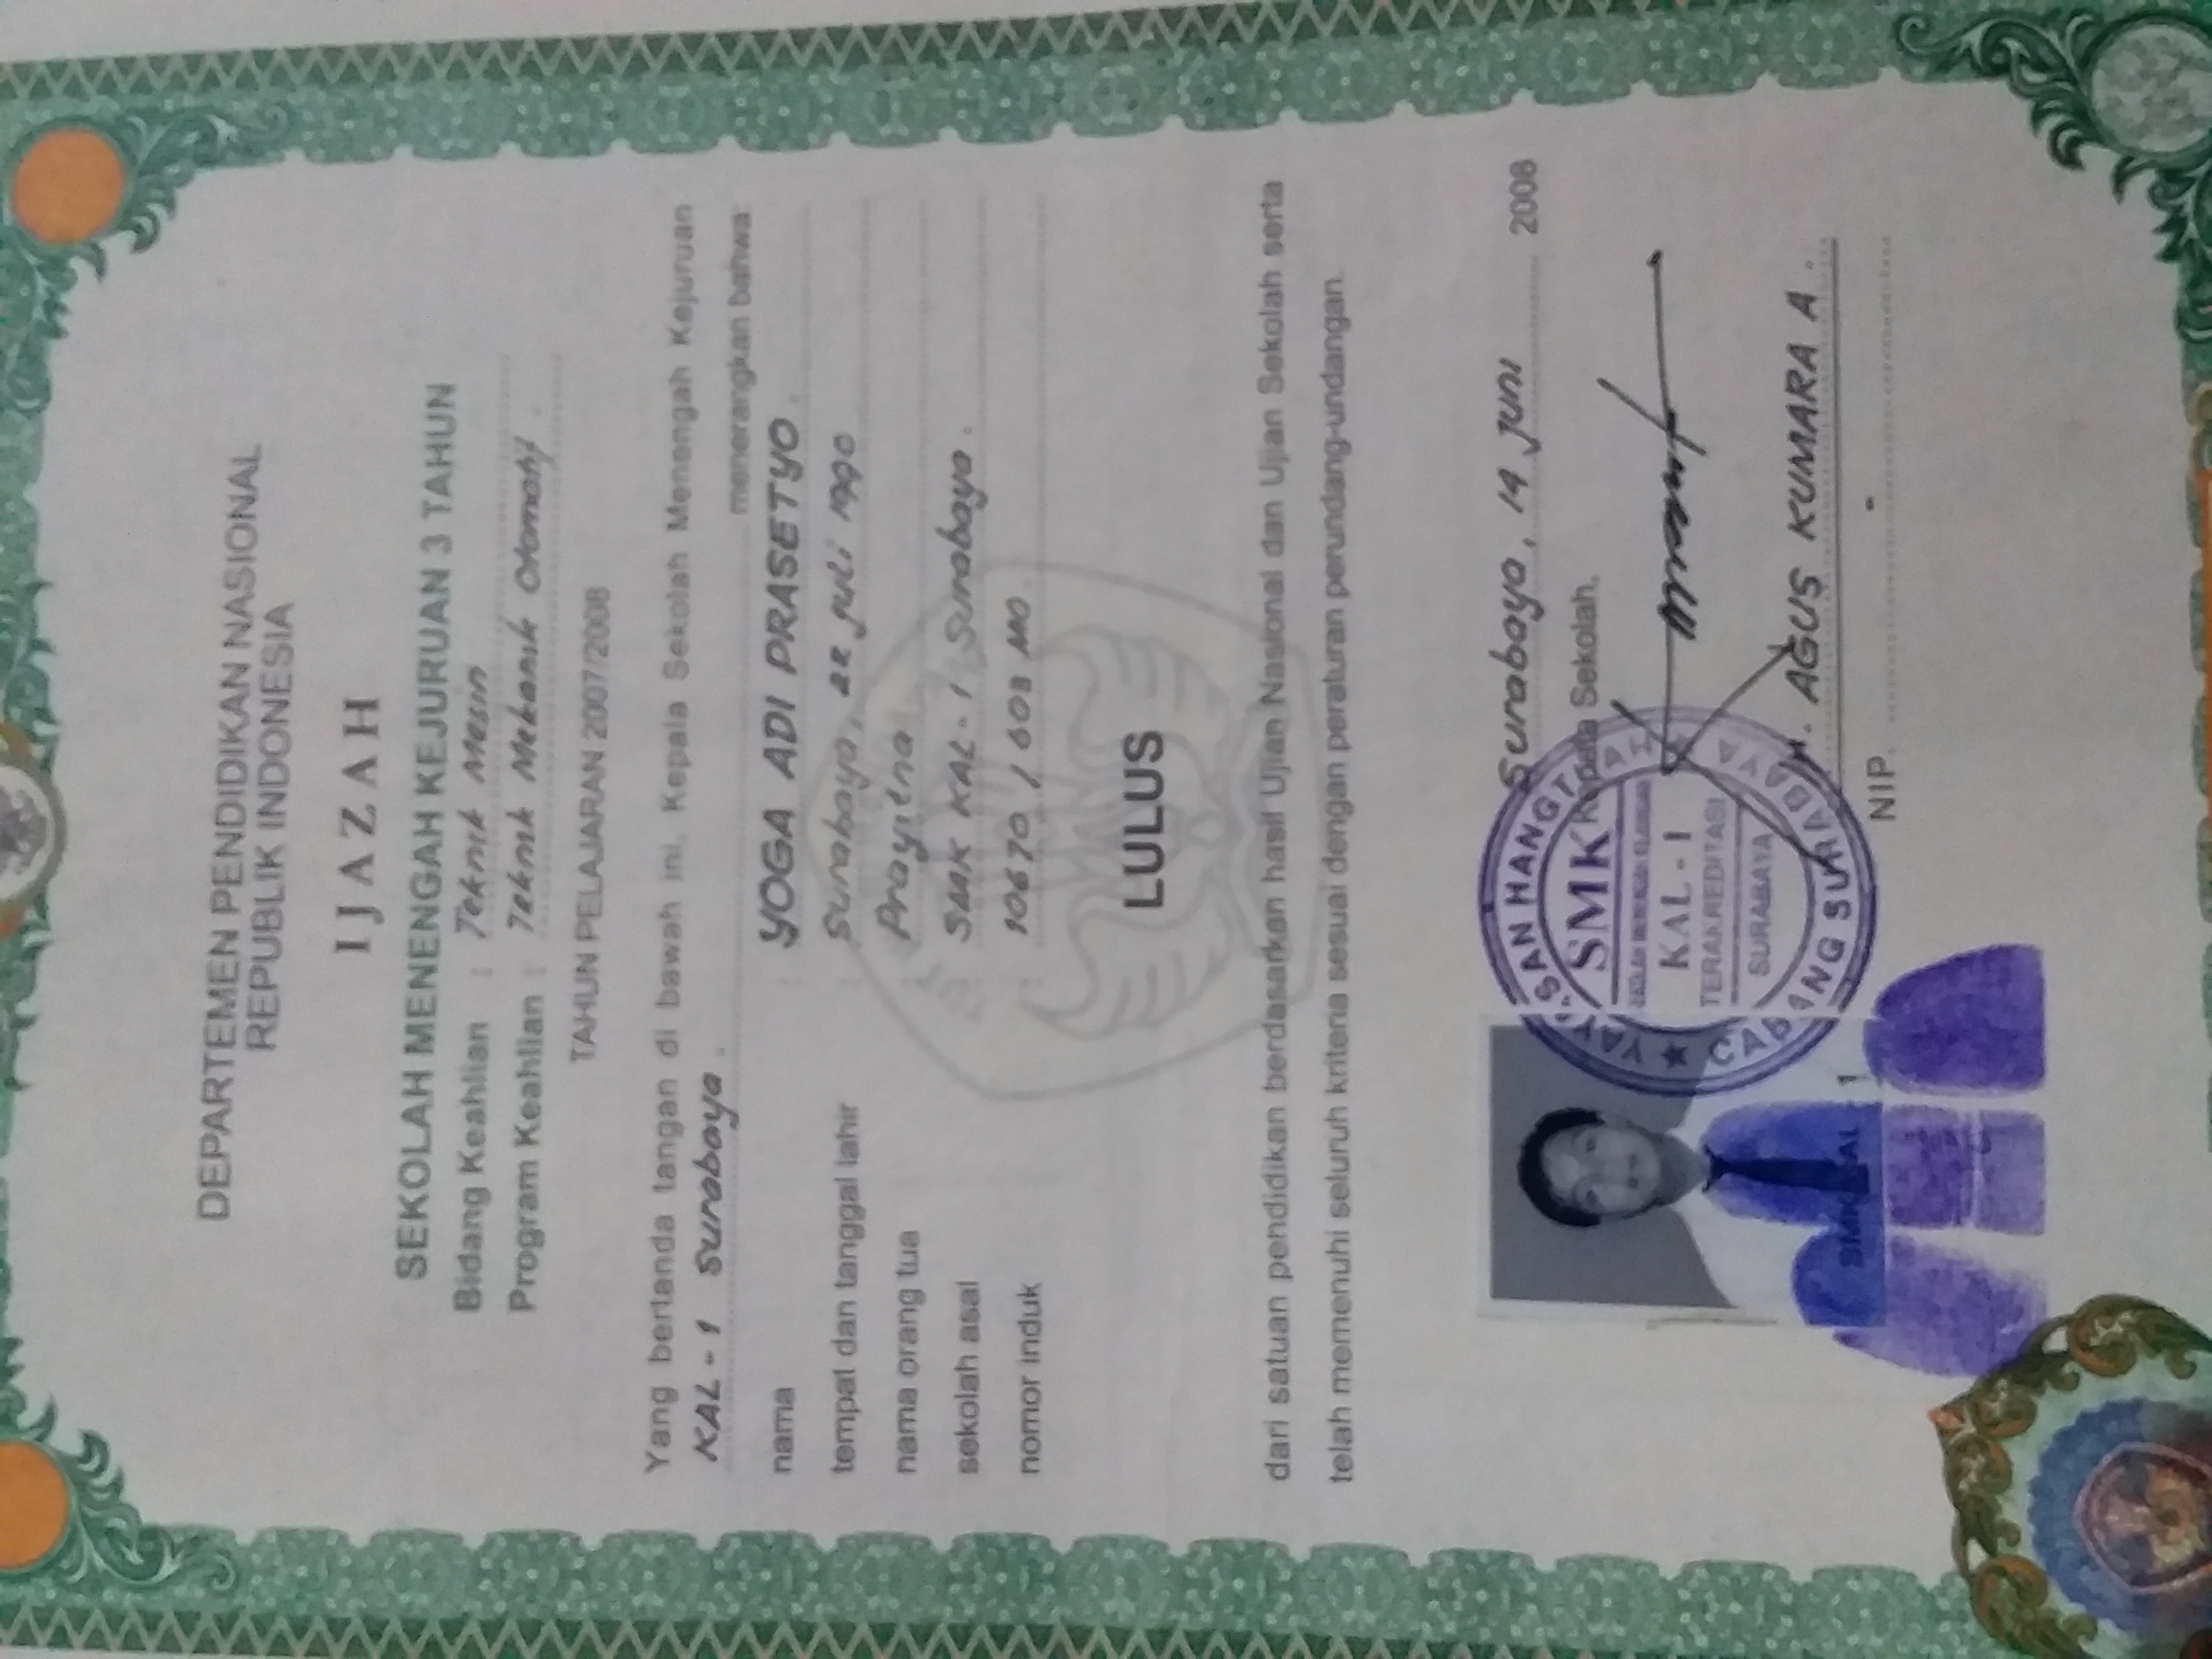 DEPARTEMEN PENDIDIKAN NASIONAL
REPUBLIK INDONESIA
IJAZAH
SEKOLAH MENENGAH KEJURUAN 3 TAHUN
Bidang Keahlian : Teknik Mesin
Program Keahlian : Teknik Mekanik Otomotif
TAHUN PELAJARAN 2007/2008
Yang bertanda tangan di bawah ini, Kepala Sekolah Menengah Kejuruan
KAL - 1 Surabaya.
menerangkan bahwa:
nama : YOGA ADI PRASETYO.
tempat dan tanggal lahir : Surabaya, 22 Juli 1990
nama orang tua : Prayitno
sekolah asal : SMK KAL - 1 Surabaya.
nomor induk : 10670 / 603 MO
LULUS
dari satuan pendidikan berdasarkan hasil Ujian Nasional dan Ujian Sekolah serta
telah memenuhi seluruh kriteria sesuai dengan peraturan perundang-undangan.
Surabaya, 14 Juni 2008
Kepala Sekolah,
YAYASAN HANGTUAH
SMK
SEKOLAH MENENGAH KEJURUAN
KAL - 1
TERAKREDITASI
SURABAYA
CABANG SURABAYA
H. AGUS KUMARA A.
SMK KAL 1
NIP. -